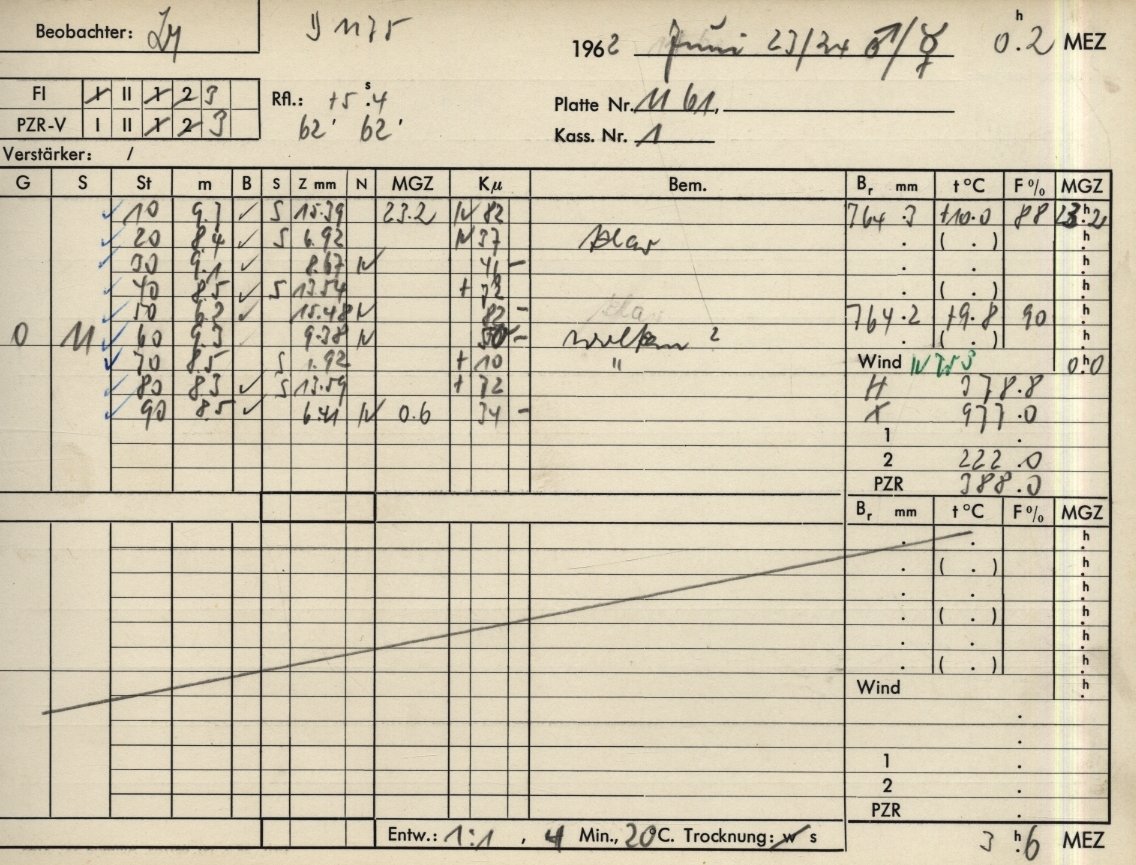 Beobachter:
1962 Juni 23/24 ♂/☿ 0h.2 MEZ
FI I II 1 2 3
PZR-V I II 1 2 3
Rfl.: +5s.4
62' 62'
Platte Nr. 1161.
Kass. Nr. 1
Verstärker: /
G S St m B S Z mm N MGZ Kμ Bem. Br mm t°C F% MGZ
10 9.7 ✓ S 15.39 23.2 N 82 764.3 +10.0 88 23h.2
20 8.4 ✓ S 6.92 N 37 klar . ( . ) h.
30 9.1 ✓ 8.67 N 41 – . . h.
40 8.5 ✓ S 13.54 + 72 . ( . ) h.
50 6.2 ✓ 15.48 N 82 – 764.2 +9.8 90 h.
0 11 60 9.3 ✓ 9.38 N 50 – wolken ? . ( . ) h.
70 8.5 S 1.92 + 10 " Wind 0h.0
80 8.3 ✓ S 13.59 + 72 H 378.8
90 8.5 ✓ 6.41 N 0.6 34 – X 977.0
1 .
2 222.0
PZR 388.0
Br mm t°C F% MGZ
. . h.
. ( . ) h.
. . h.
. ( . ) h.
. . h.
. ( . ) h.
Wind h.
.
.
1 .
2 .
PZR .
Entw.: 1:1, 4 Min., 20°C. Trocknung: w s 3h.6 MEZ